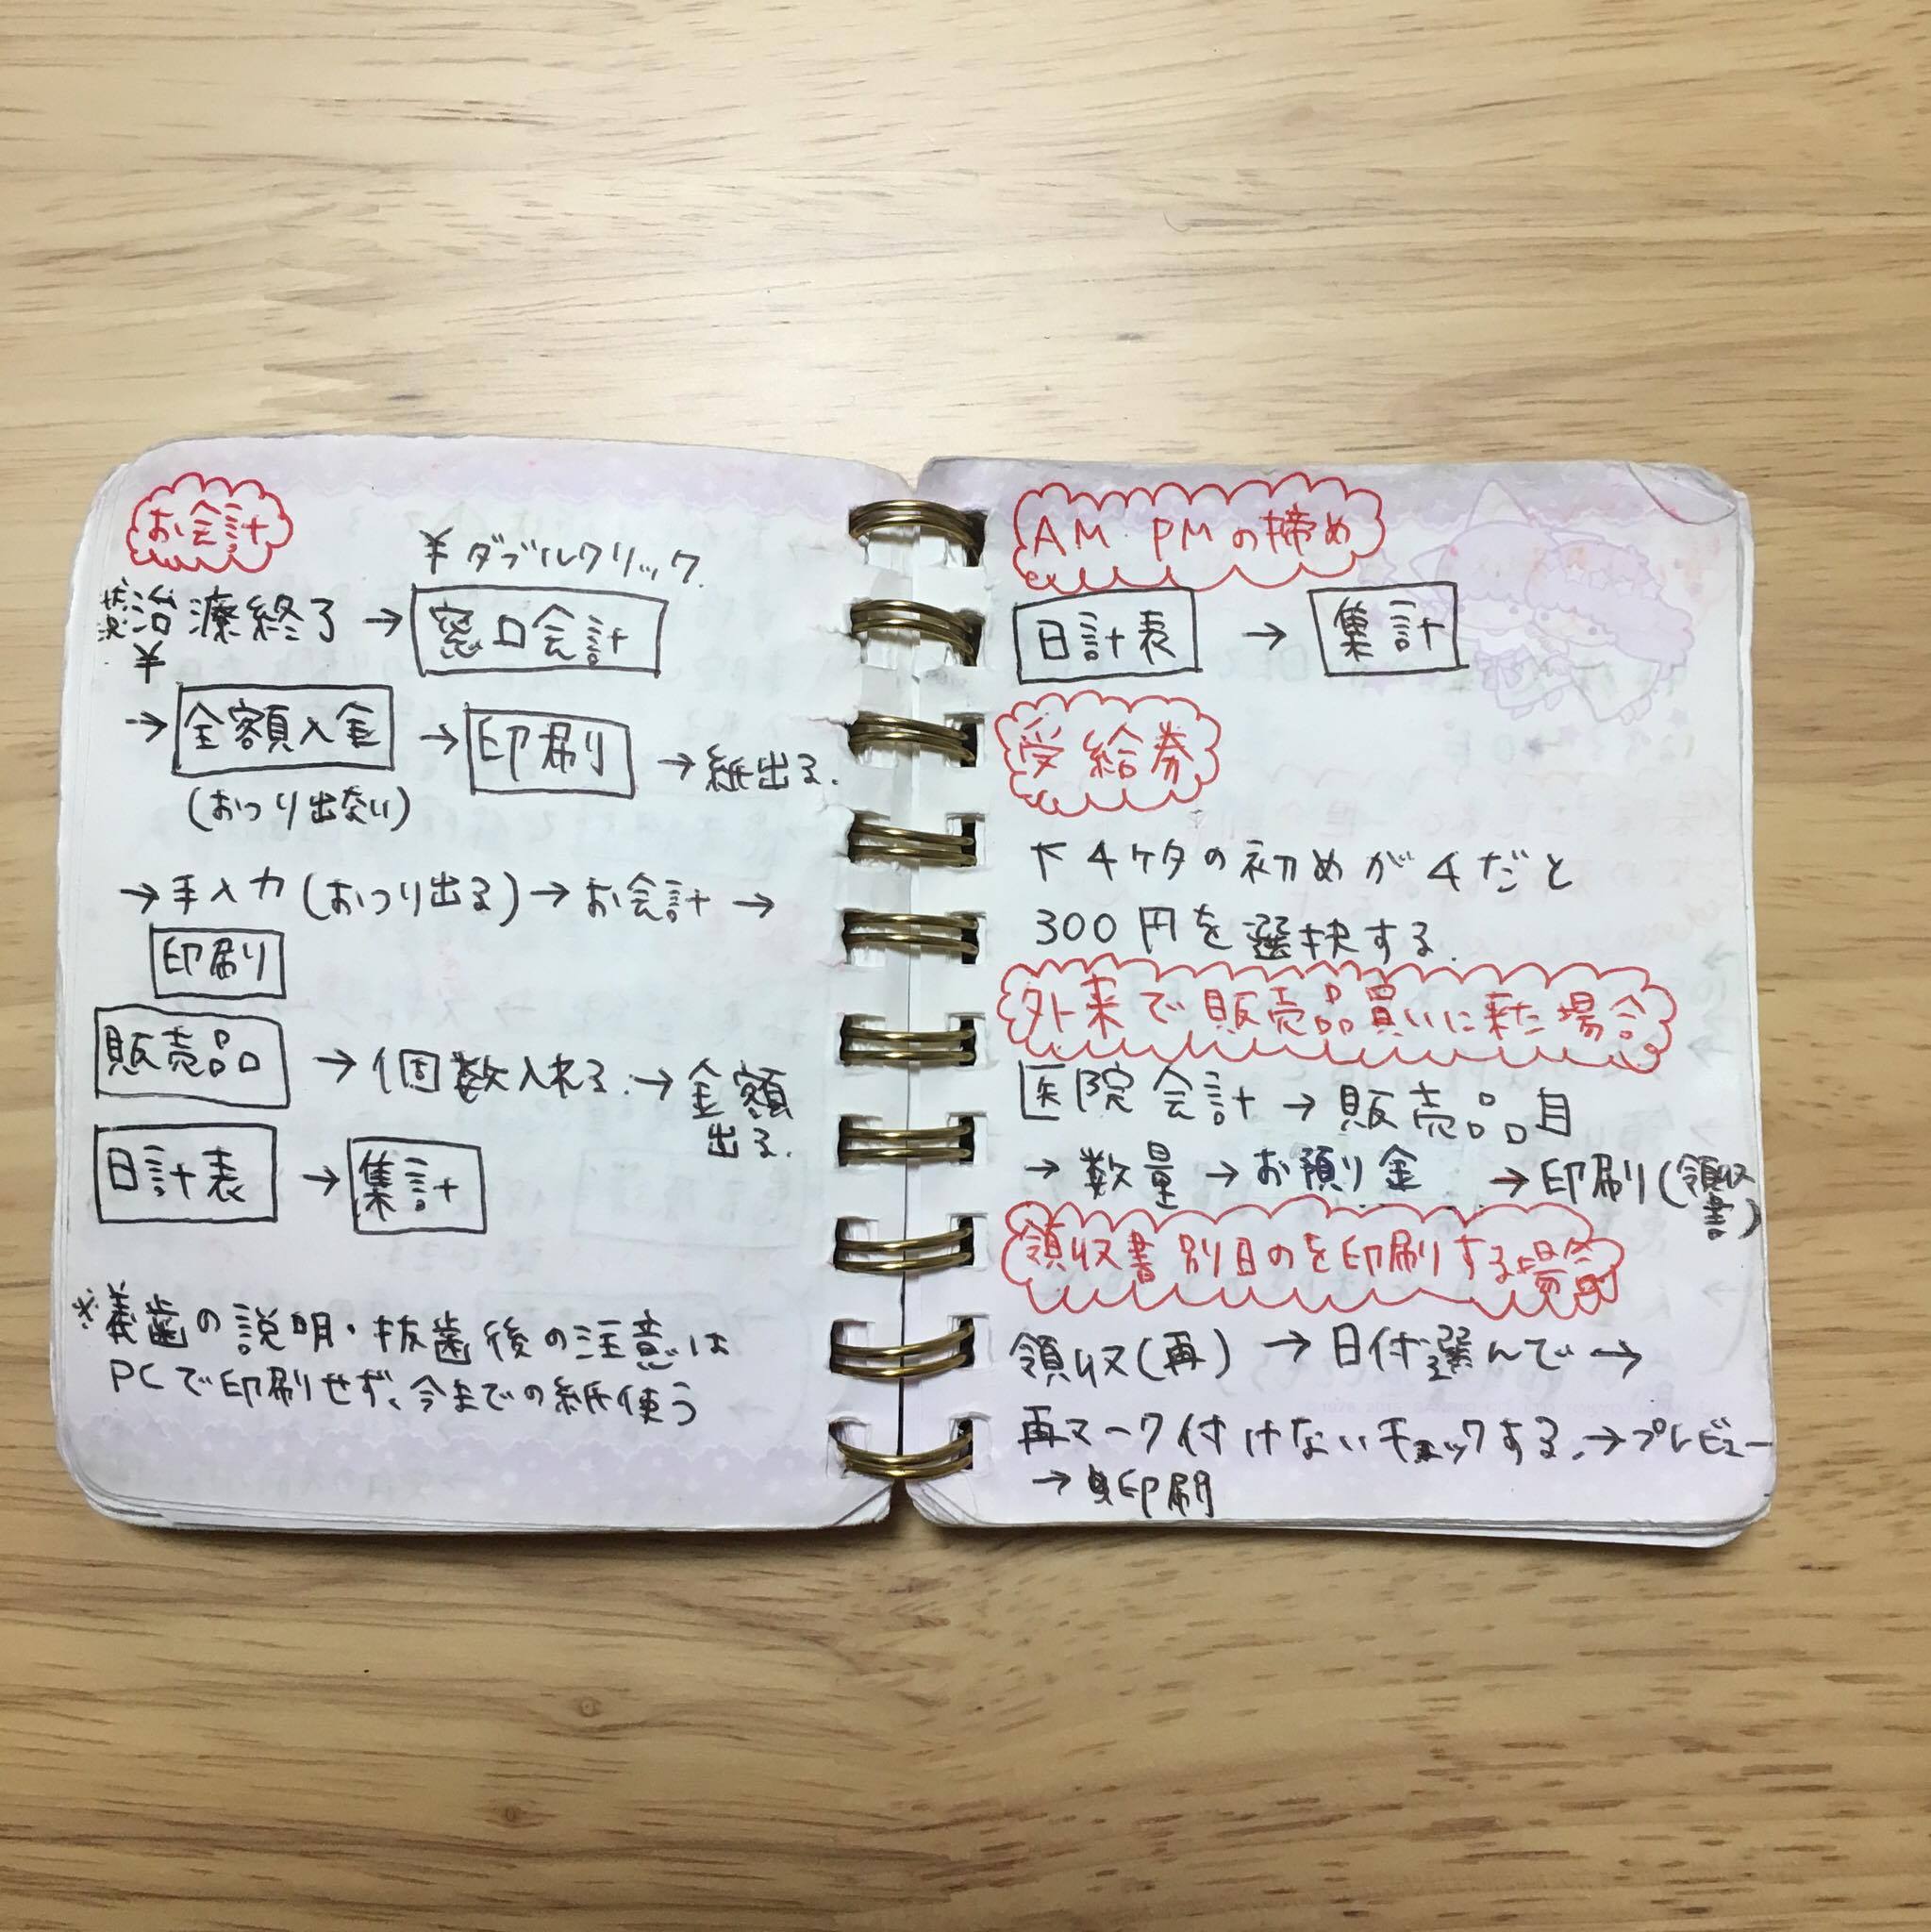 お会計
¥ダブルクリック.
状況 治療終了 → 窓口会計
¥
→ 全額入金 → 印刷 → 紙出る.
(おつり出ない)
→ 手入力(おつり出る) → お会計 →
印刷
販売品 → 個数入れる. → 金額
出る.
日計表 → 集計
※義歯の説明・抜歯後の注意は
PCで印刷せず、今までの紙使う
AM PMの締め
日計表 → 集計
受給券
下4ケタの初めが4だと
300円を選択する.
外来で販売品買いに来た場合
医院会計 → 販売品目
→ 数量 → お預り金 → 印刷(領収
書)
領収書別日のを印刷する場合
領収(再) → 日付選んで →
再マーク付けないチェックする. → プレビュー
→ 印刷